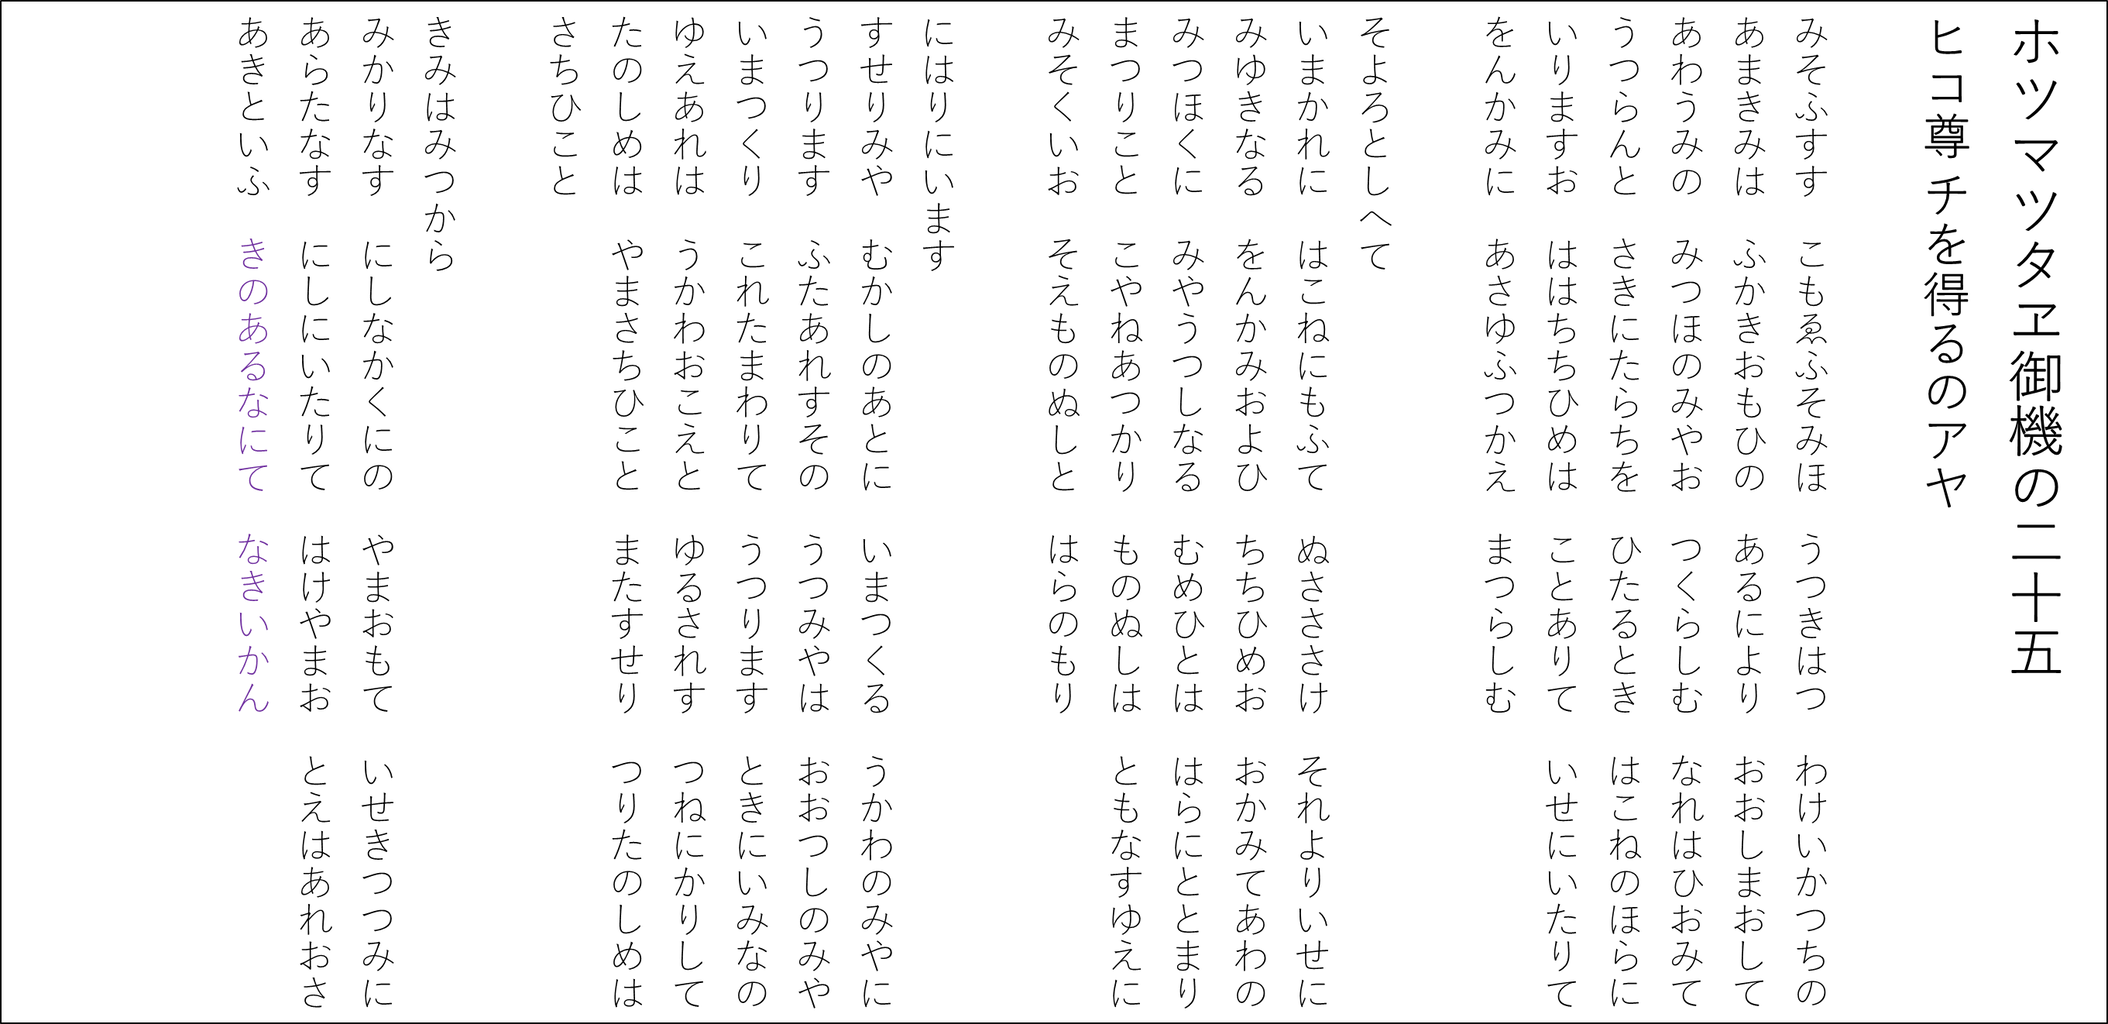 ホツマツタヱ御機の二十五
ヒコ尊チを得るのアヤ
みそふすす　こもゑふそみほ　うつきはつ　わけいかつちの
あまきみは　ふかきおもひの　あるにより　おおしまおして
あわうみの　みつほのみやお　つくらしむ　なれはひおみて
うつらんと　さきにたらちを　ひたるとき　はこねのほらに
いりますお　ははちちひめは　ことありて　いせにいたりて
をんかみに　あさゆふつかえ　まつらしむ
そよろとしへて
いまかれに　はこねにもふて　ぬさささけ　それよりいせに
みゆきなる　をんかみおよひ　ちちひめお　おかみてあわの
みつほくに　みやうつしなる　むめひとは　はらにととまり
まつりこと　こやねあつかり　ものぬしは　ともなすゆえに
みそくいお　そえものぬしと　はらのもり
にはりにいます
すせりみや　むかしのあとに　いまつくる　うかわのみやに
うつります　ふたあれすその　うつみやは　おおつしのみや
いまつくり　これたまわりて　うつります　ときにいみなの
ゆえあれは　うかわおこえと　ゆるされす　つねにかりして
たのしめは　やまさちひこと　またすせり　つりたのしめは
さちひこと
きみはみつから
みかりなす　にしなかくにの　やまおもて　いせきつつみに
あらたなす　にしにいたりて　はけやまお　とえはあれおさ
あきといふ　きのあるなにて　なきいかん